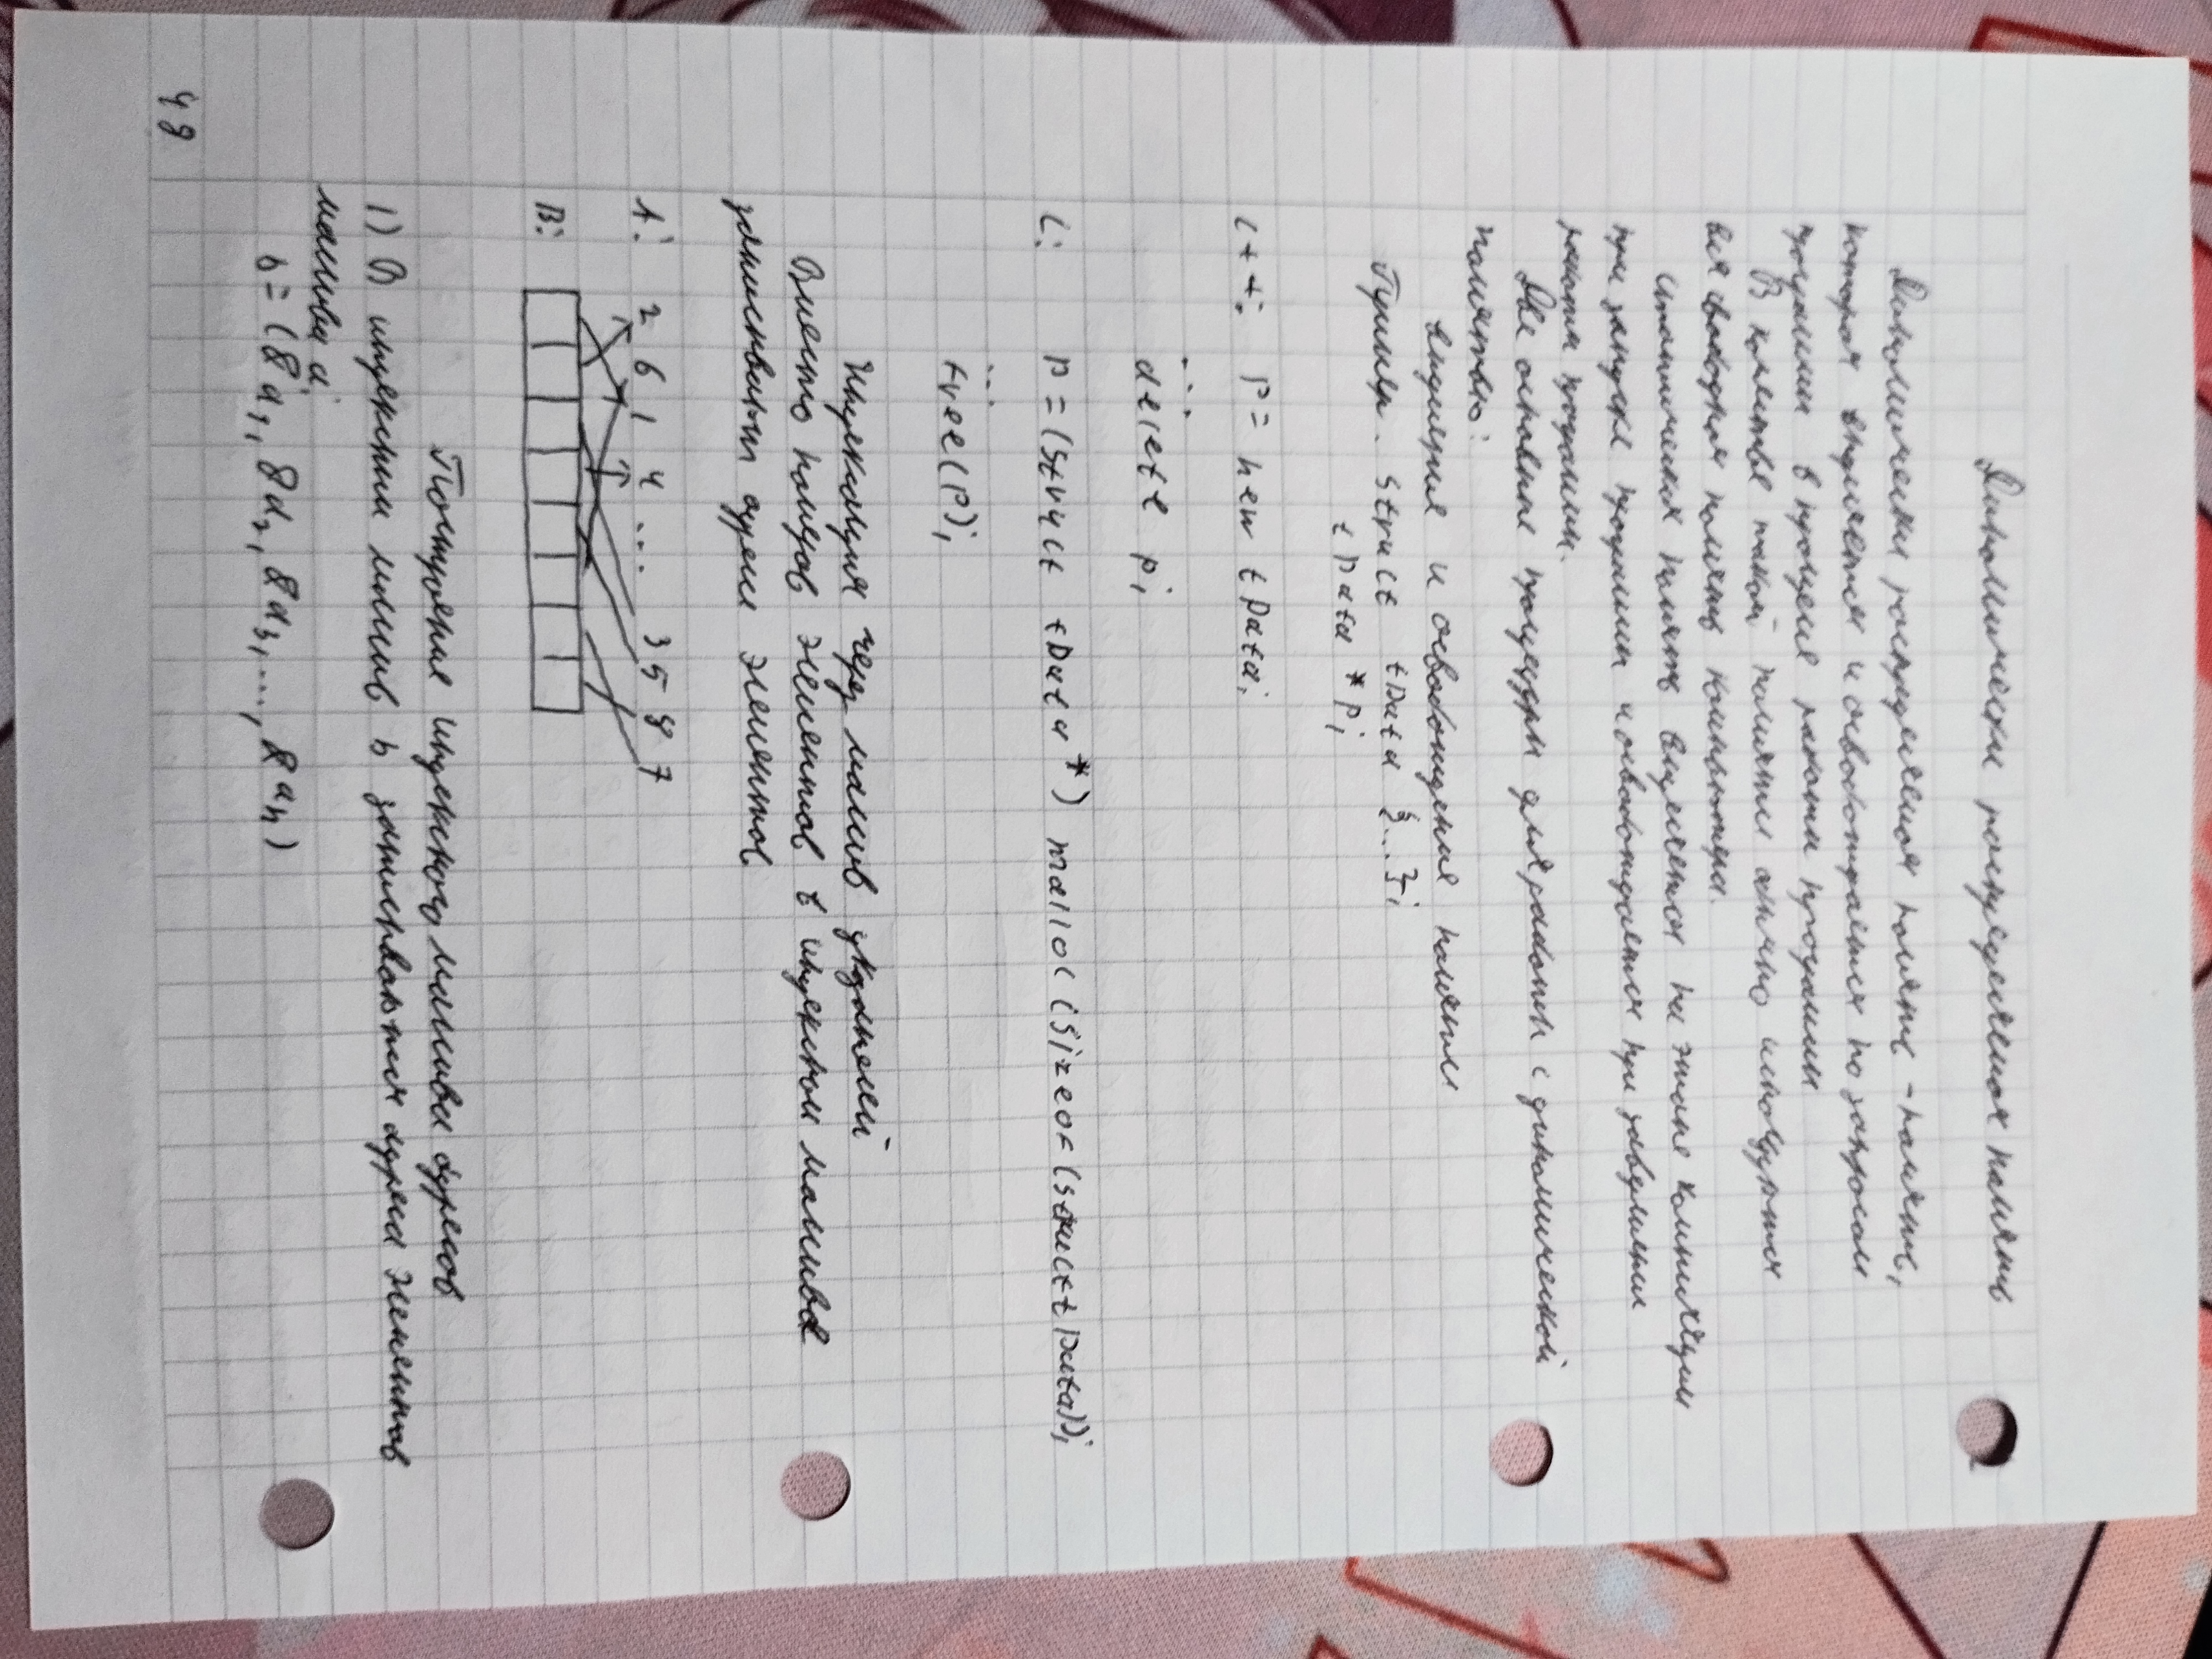 Динамически распределяемая память
Динамически распределяемая память – память,
которая выделяется и освобождается по запросам
программы в процессе работы программы
В качестве такой памяти обычно используется
вся свободная память компьютера.
Статическая память выделяется на этапе компиляции
при запуске программы и освобождается при завершении
работы программы.
Две основные процедуры для работы с динамической
памятью:
выделение и освобождение памяти
Пример. struct tData {...};
tData *p;
C++: p = new tData;
...
delete p;
C: p = (struct tData *) malloc (sizeof (struct tData));
...
free(p);
Индексация через массив указателей
Вместо номеров элементов в индексном массиве
записывают адреса элементов
A: 2 6 1 4 ... 3 5 8 7
B:
Построение индексного массива адресов
1) В индексный массив b записываются адреса элементов
массива a:
b = (&a₁, &a₂, &a₃, ..., &aₙ)
48